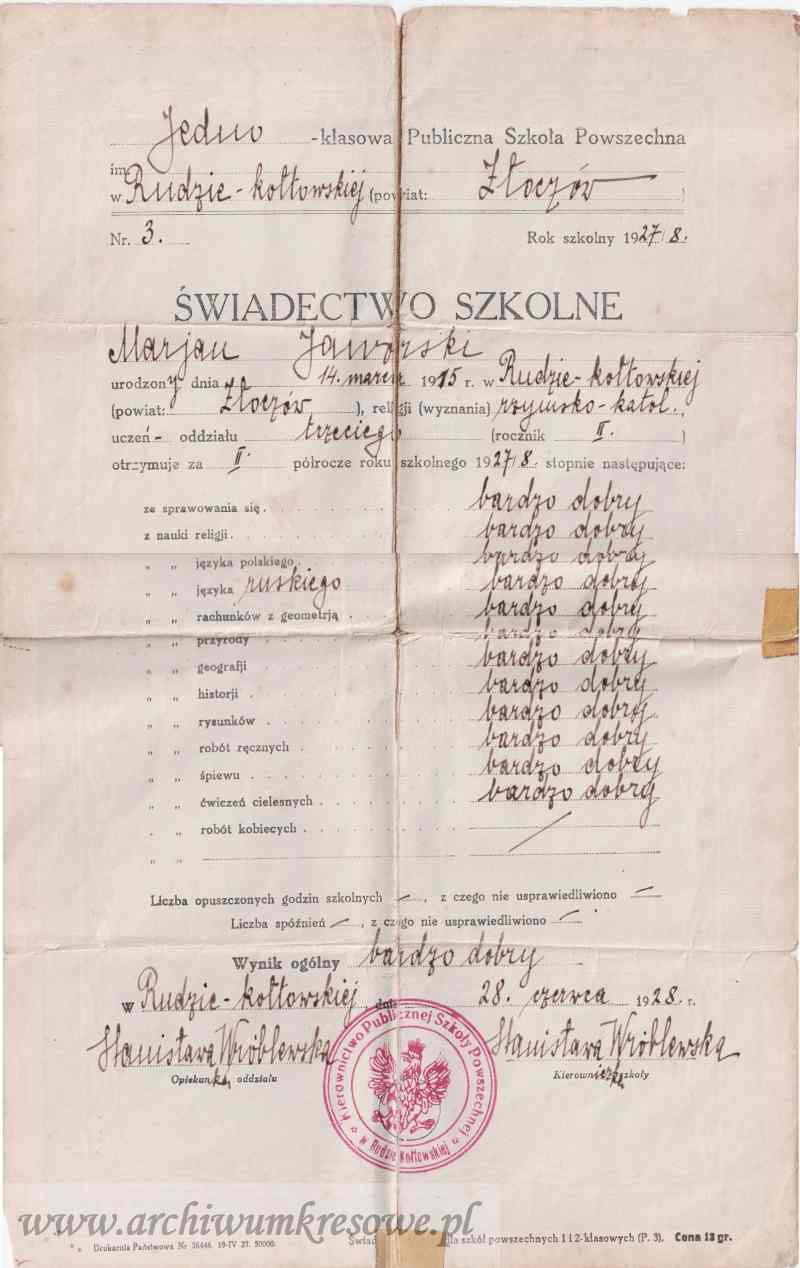 Jedno -klasowa Publiczna Szkoła Powszechna
im
w Rudzie-kołtowskiej (powiat: Złoczów )
Nr. 3. Rok szkolny 1927/8.
ŚWIADECTWO SZKOLNE
Marjan Jaworski
urodzony dnia 14. marca 1915 r. w Rudzie-kołtowskiej
(powiat: Złoczów ), religji (wyznania) rzymsko-katol.,
uczeń- oddziału trzeciego (rocznik II. )
otrzymuje za II. półrocze roku szkolnego 1927/8. stopnie następujące:
ze sprawowania się . bardzo dobry
z nauki religji . bardzo dobry
„ „ języka polskiego . bardzo dobry
„ „ języka ruskiego bardzo dobry
„ „ rachunków z geometrją . bardzo dobry
„ „ przyrody bardzo dobry
„ „ geografji bardzo dobry
„ „ historji . bardzo dobry
„ „ rysunków . bardzo dobry
„ „ robót ręcznych . bardzo dobry
„ „ śpiewu . bardzo dobry
„ „ ćwiczeń cielesnych . bardzo dobry
„ „ robót kobiecych . /
„ „
Liczba opuszczonych godzin szkolnych — , z czego nie usprawiedliwiono —
Liczba spóźnień — , z czego nie usprawiedliwiono —
Wynik ogólny bardzo dobry
w Rudzie-kołtowskiej, dnia 28. czerwca 1928. r.
Stanisława Wróblewska Stanisława Wróblewska
Opiekunka oddziału Kierowniczka szkoły
Kierownictwo Publicznej Szkoły Powszechnej
w Rudzie Kołtowskiej
www.archiwumkresowe.pl
Drukarnia Państwowa Nr 36446 19-IV 27. 50000. dla szkół powszechnych 1 i 2-klasowych (P. 3). Cena 13 gr.